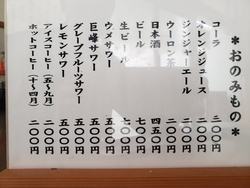 ＊おのみもの＊
コーラ 二〇〇円
オレンジジュース 二〇〇円
ジンジャーエール 二〇〇円
ウーロン茶 二〇〇円
日本酒 四五〇円
ビール 七〇〇円
生ビール 七〇〇円
ウメサワー 五〇〇円
巨峰サワー 五〇〇円
グレープフルーツサワー 五〇〇円
レモンサワー 五〇〇円
アイスコーヒー（五〜九月） 二〇〇円
ホットコーヒー（十〜四月） 二〇〇円